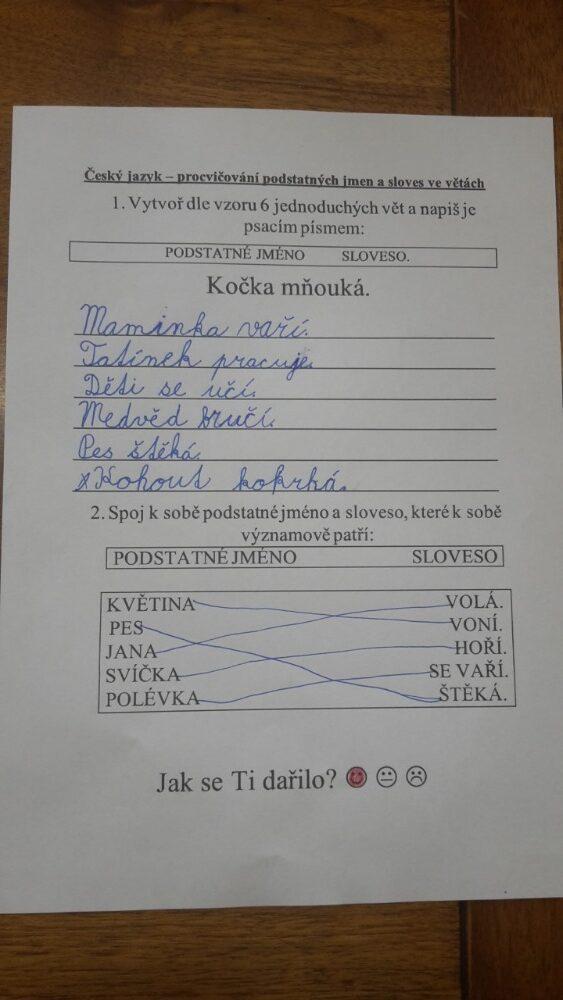 Český jazyk – procvičování podstatných jmen a sloves ve větách
1. Vytvoř dle vzoru 6 jednoduchých vět a napiš je
psacím písmem:
PODSTATNÉ JMÉNO SLOVESO.
Kočka mňouká.
Maminka vaří.
Tatínek pracuje.
Děti se učí.
Medvěd bručí.
Pes štěká.
Kohout kokrhá.
2. Spoj k sobě podstatné jméno a sloveso, které k sobě
významově patří:
PODSTATNÉ JMÉNO SLOVESO
KVĚTINA VOLÁ.
PES VONÍ.
JANA HOŘÍ.
SVÍČKA SE VAŘÍ.
POLÉVKA ŠTĚKÁ.
Jak se Ti dařilo?